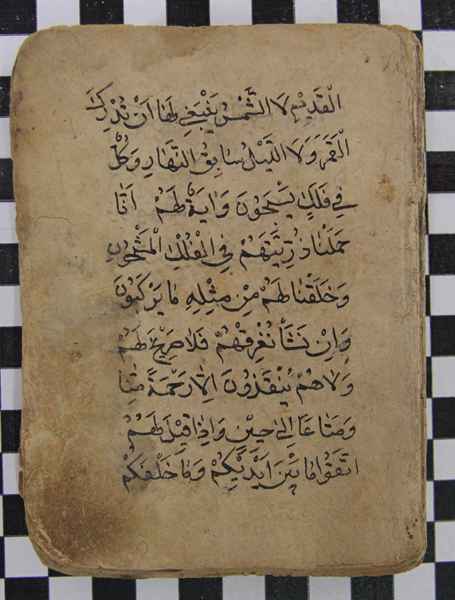 القديم لا الشمس ينبغي لها ان تدرك
القمر ولا الليل سابق النهار وكل
في فلك يسبحون واية لهم انا
حملنا ذريتهم في الفلك المشحون
وخلقنا لهم من مثله ما يركبون
وان نشأ نغرقهم فلا صريخ لهم
ولاهم ينقذون الا رحمة منا
ومتاعا الى حين واذا قيل لهم
اتقوا ما بين ايديكم وما خلفكم